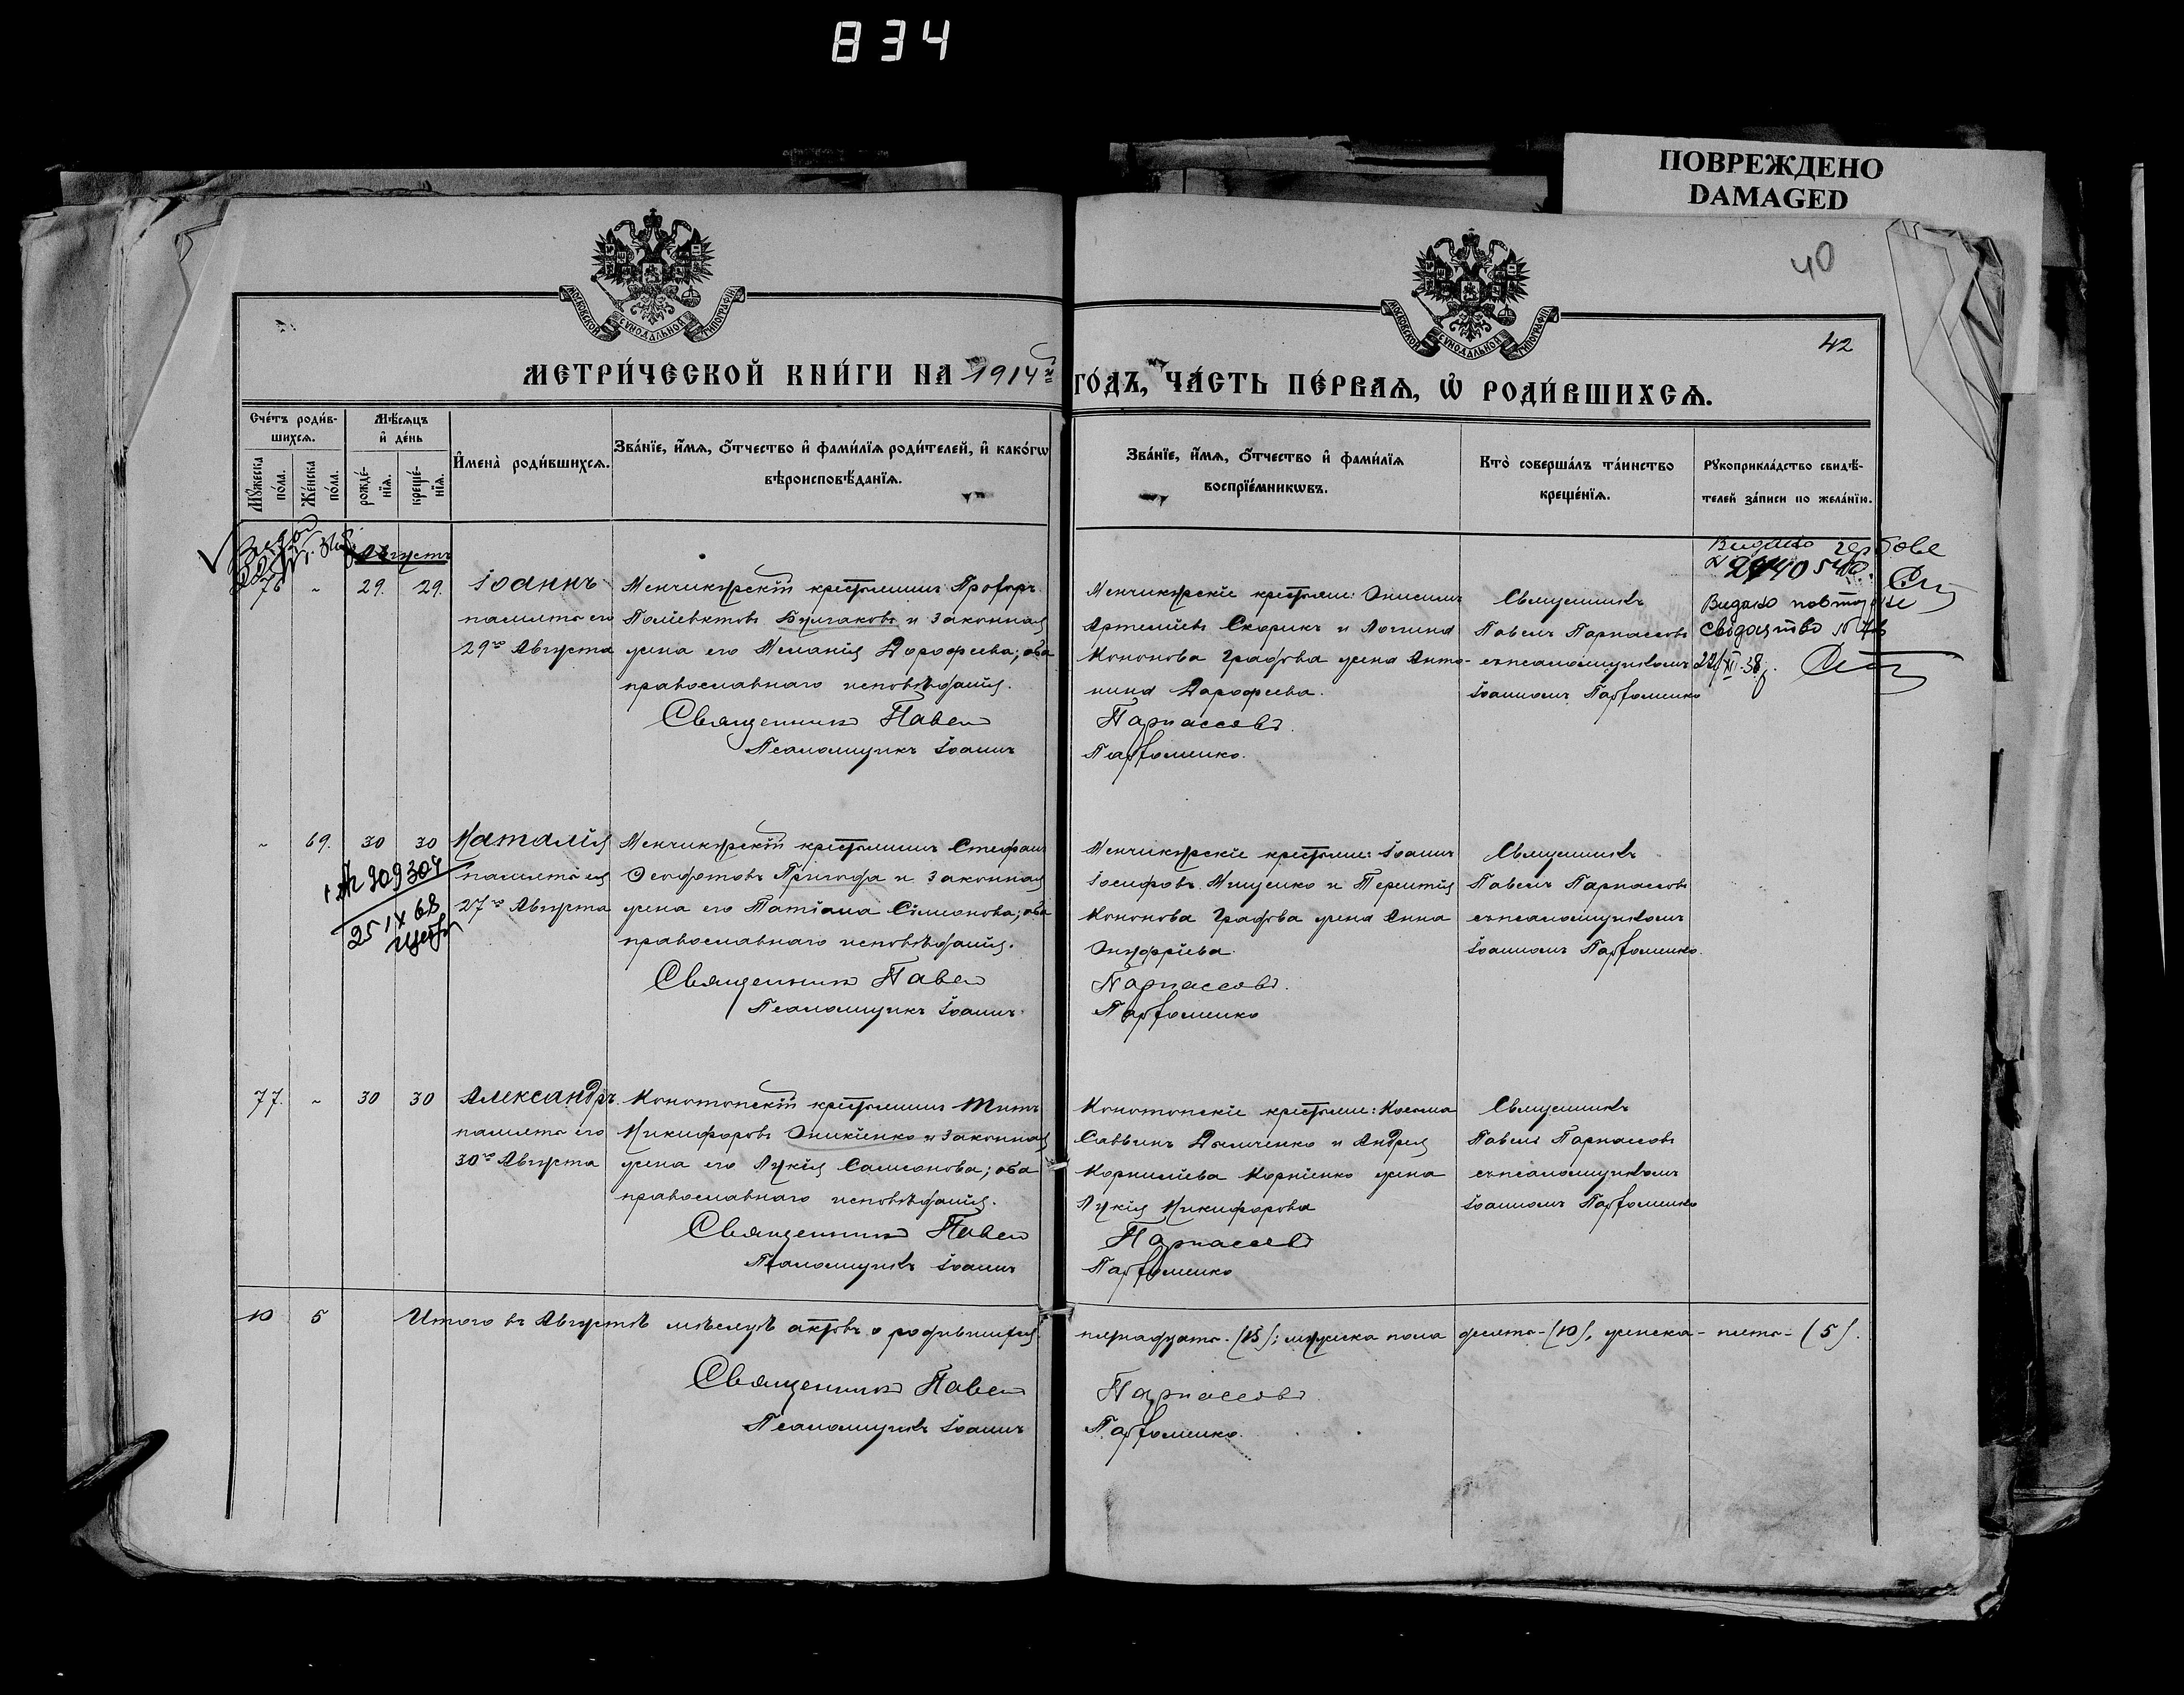 834
ПОВРЕЖДЕНО
DAMAGED
40
42
МОСКОВСКОЙ СѴНОДАЛЬНОЙ ТИПОГРАФІИ
МОСКОВСКОЙ СѴНОДАЛЬНОЙ ТИПОГРАФІИ
МЕТРИ́ЧЕСКОЙ КНИ́ГИ НА 1914й
ГО́ДЪ, ЧА́СТЬ ПЕ́РВАѦ, Ѡ҆ РОДИ́ВШИХСѦ.
Сче́тъ роди́в-
шихсѧ.
Мѣ́сѧцъ
и҆ де́нь
Мꙋ́жеска по́ла.
Же́нска по́ла.
рожде́-
нїѧ.
креще́-
нїѧ.
И҆мена̀ роди́вшихсѧ.
Зва́нїе, и҆́мѧ, ѻ҆́тчество и҆ фами́лїѧ роди́телей, и҆ како́гѡ
вѣроисповѣ́данїѧ.
Зва́нїе, и҆́мѧ, ѻ҆́тчество и҆ фами́лїѧ
воспрїе́мникѡвъ.
Кто̀ соверша́лъ та́инство
креще́нїѧ.
Рꙋкоприкла́дство свидѣ́-
телей за́писи по жела́нїю.
Августъ
76 - 29. 29. Іоаннъ
память его
29го Августа
Менчикурскій крестьянинъ Прохоръ
Поліевктовъ Булгаковъ и законная
жена его Меланія Дорофеева; оба
православнаго исповѣданія.
Священникъ Павелъ
Псаломщикъ Іоаннъ
Менчикурскіе крестьяне: Онисимъ
Артеміевъ Скорикъ и Логина
Кононова Градова жена Анто-
нина Дарофеева.
Парнассовъ.
Парѳоменко.
Священникъ
Павелъ Парнассовъ
съ псаломщикомъ
Іоанномъ Парѳоменко
Видано
Видано повторне
свідоцтво
22/XII-38
- 69. 30 30 Наталія
память ея
27го Августа
25 IX 68
Менчикурскій крестьянинъ Стефанъ
Ѳеодотовъ Пригода и законная
жена его Татіана Симонова; оба
православнаго исповѣданія.
Священникъ Павелъ
Псаломщикъ Іоаннъ
Менчикурскіе крестьяне: Іоаннъ
Іосифовъ Мищенко и Терентія
Кононова Градова жена Анна
Онуфріева.
Парнассовъ.
Парѳоменко
Священникъ
Павелъ Парнассовъ
съ псаломщикомъ
Іоанномъ Парѳоменко.
77. - 30 30 Александръ.
память его
30го Августа
Конотопскій крестьянинъ Титъ
Никифоровъ Оникіенко и законная
жена его Лукія Самсонова; оба
православнаго исповѣданія.
Священникъ Павелъ
Псаломщикъ Іоаннъ
Конотопскіе крестьяне: Косма
Саввинъ Дьяченко и Андрея
Корниліева Корніенко жена
Лукія Никифорова
Парнассовъ
Парѳоменко
Священникъ
Павелъ Парнассовъ
съ псаломщикомъ
Іоанномъ Парѳоменко
10 5 Итого въ Августѣ мѣсяцѣ актовъ о родившихся
пятнадцать-(15); мужска пола десять-(10), женска-пять-(5).
Священникъ Павелъ
Парнассовъ.
Псаломщикъ Іоаннъ
Парѳоменко.